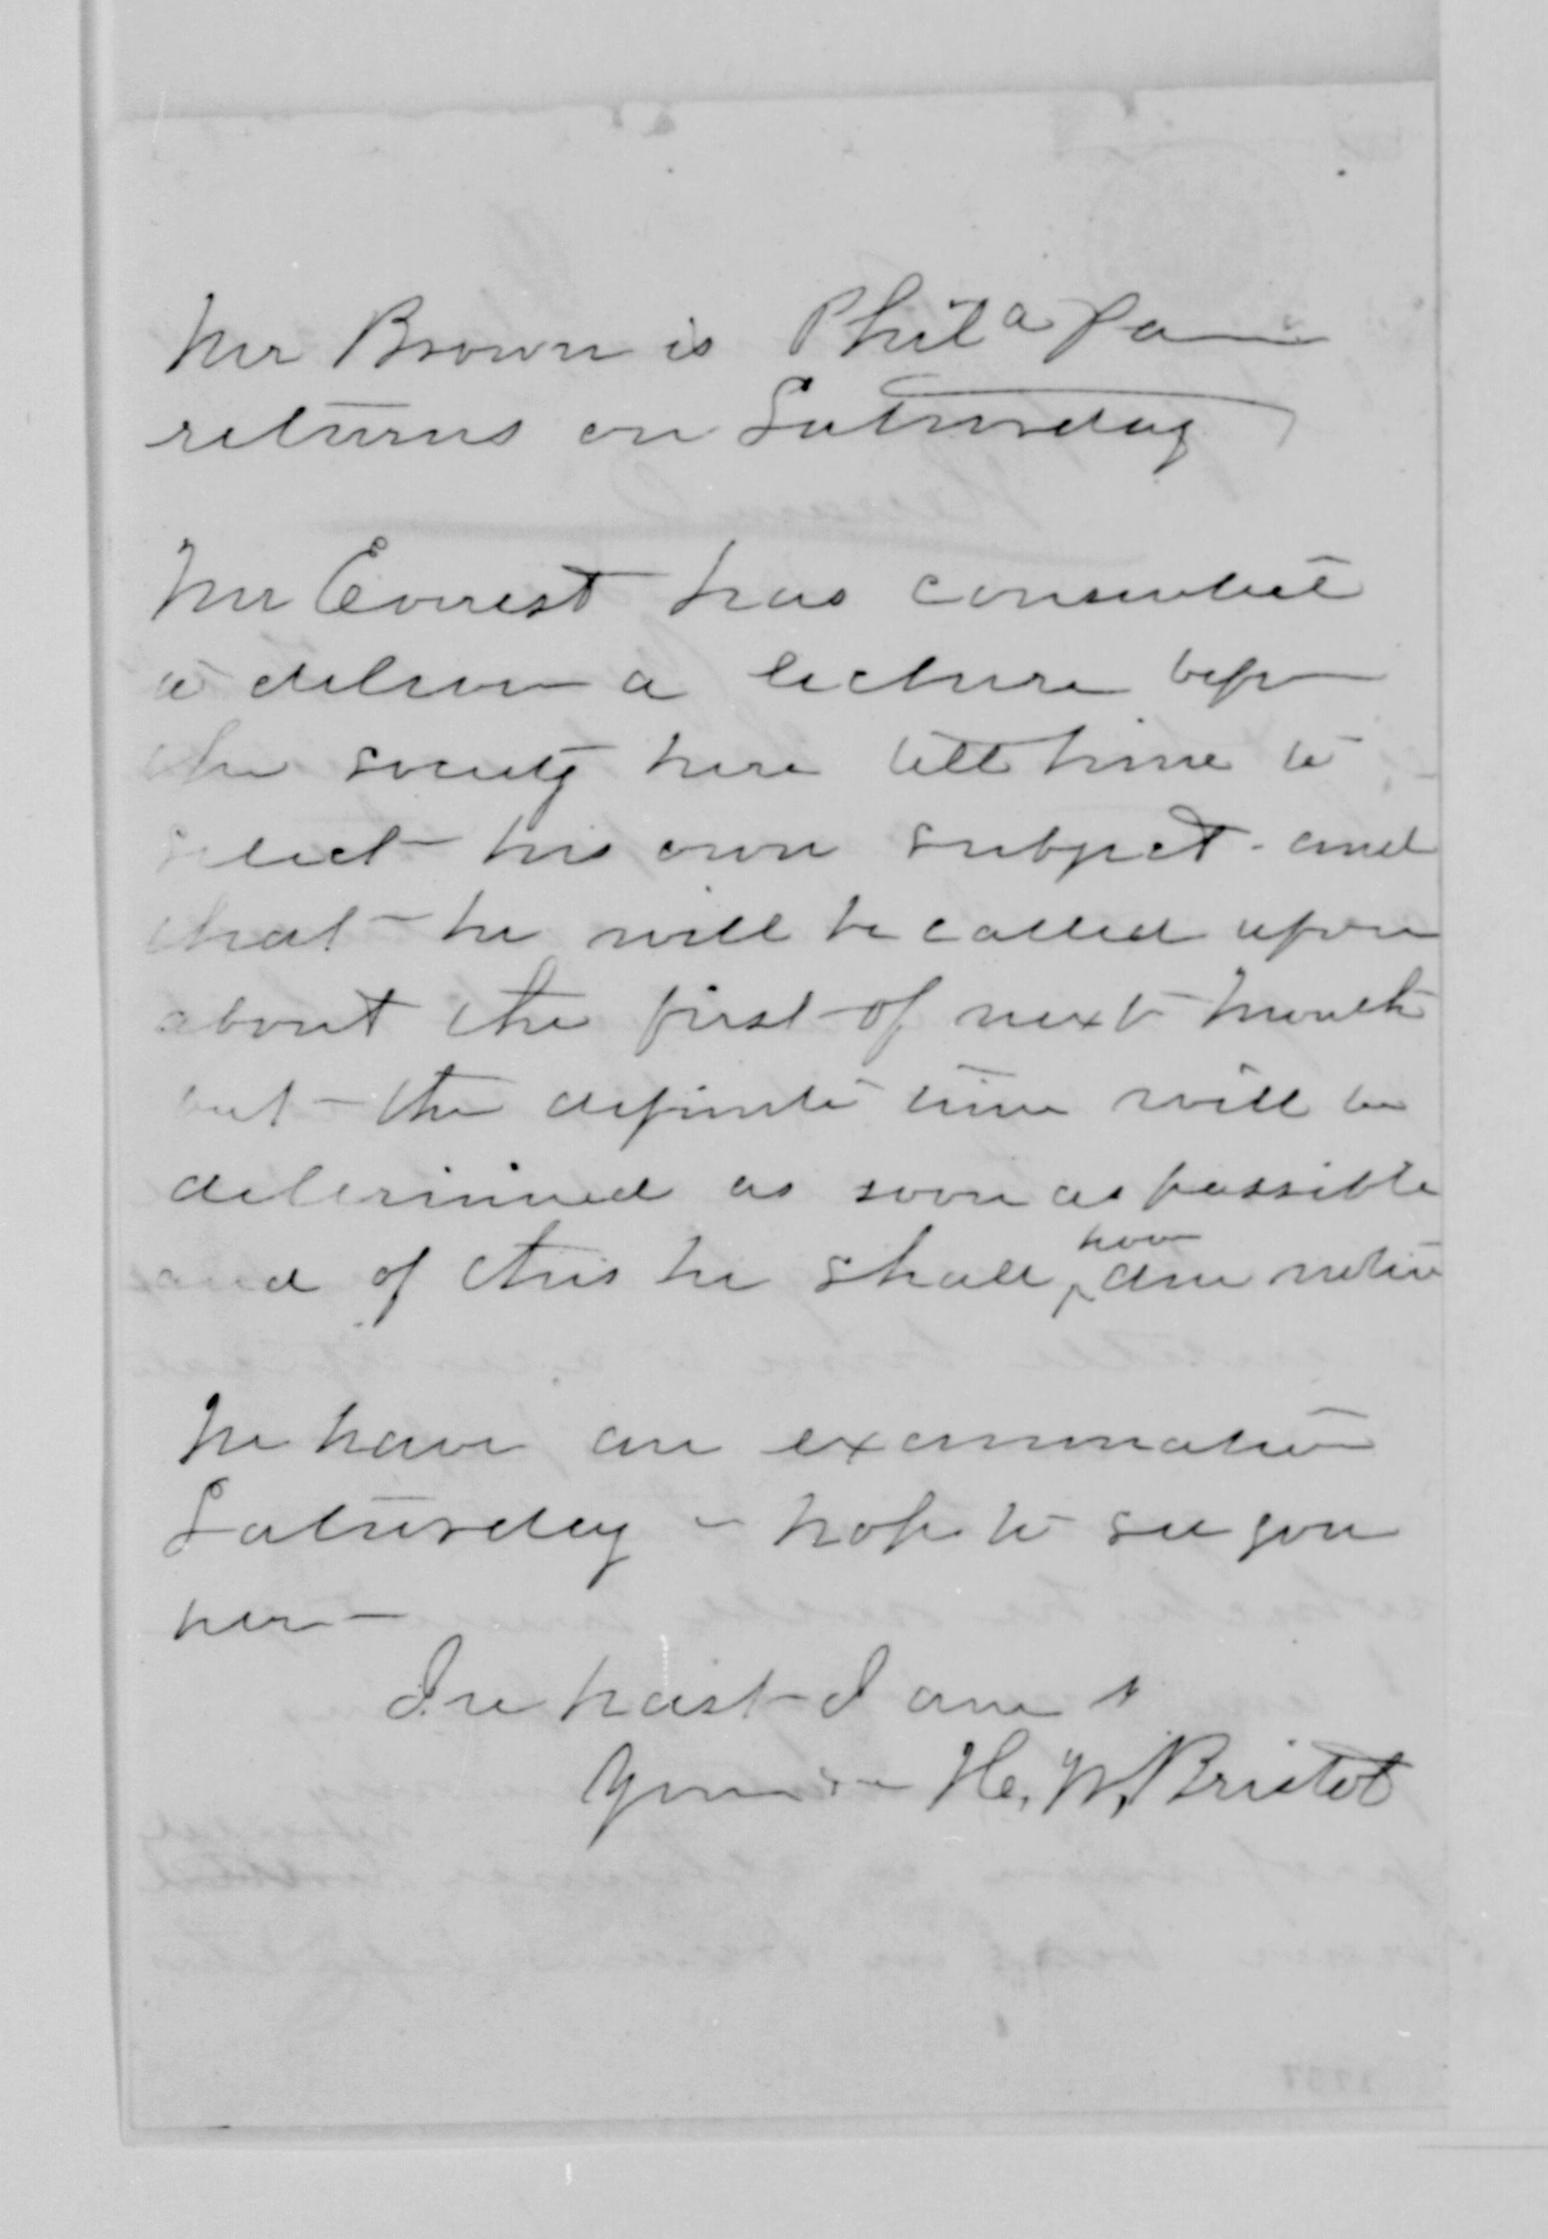 Mr Brown is Phila Pa
returns on Saturday
Mr Everest has consented
to deliver a lecture before
the society here tell him to
select his own subject - and
that he will be called upon
about the first of next month
but the definite time will be
determined as soon as possible
and of this he shall have due notice
We have an examination
Saturday - hope to see you
here -
In hast I am
Yours H. W. Bristol